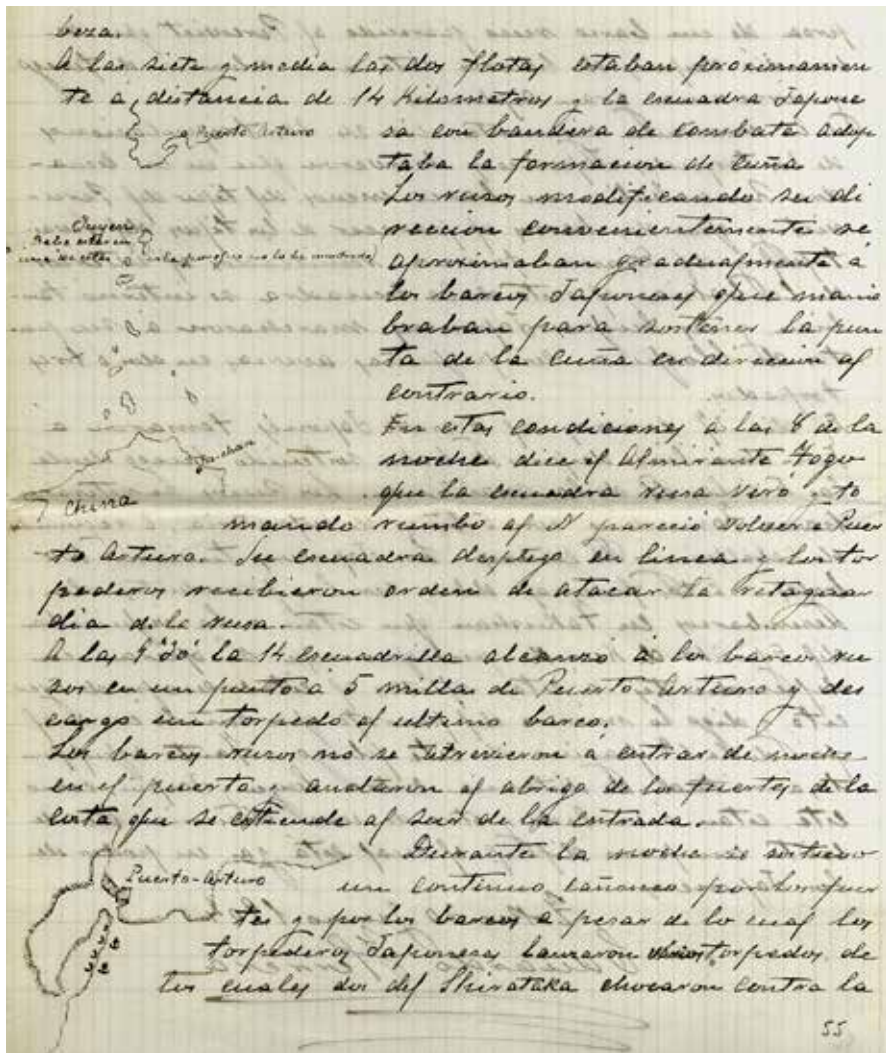 beza.
A las siete y media las dos flotas estaban proximamen
te a distancia de 14 Kilometros y la escuadra Japone
Puerto Arturo
sa con bandera de combate adop
taba la formacion de cuña
Los rusos modificando su di
reccion convenientemente se
aproximaban gradualmente á
los barcos Japoneses que manio
braban para sostener la pun
ta de la cuña en direccion al
contrario.
Debe estar en
una de estas islas porque no lo he encontrado
En estas condiciones a las 8 de la
noche dice el Almirante Togo
que la escuadra rusa viró y to
China
mando rumbo al N pareció volver a Puer
to Arturo. Su escuadra desplego en linea y los tor
pederos recibieron orden de atacar la retaguar
dia de la rusa.
A las 9"30' la 14 escuadrilla alcanzó á los barcos ru
sos en un punto á 5 millas de Puerto Arturo y des
cargo un torpedo al ultimo barco.
Los barcos rusos no se atrevieron á entrar de noche
en el puerto y anclaron al abrigo de los fuertes de la
costa que se estiende al sur de la entrada.
Puerto-Arturo
Durante la noche se sostuvo
un continuo cañoneo por los fuer
tes y por los barcos a pesar de lo cual los
torpederos Japoneses lanzaron varios torpedos de
los cuales dos del Shirataka chocaron contra la
55